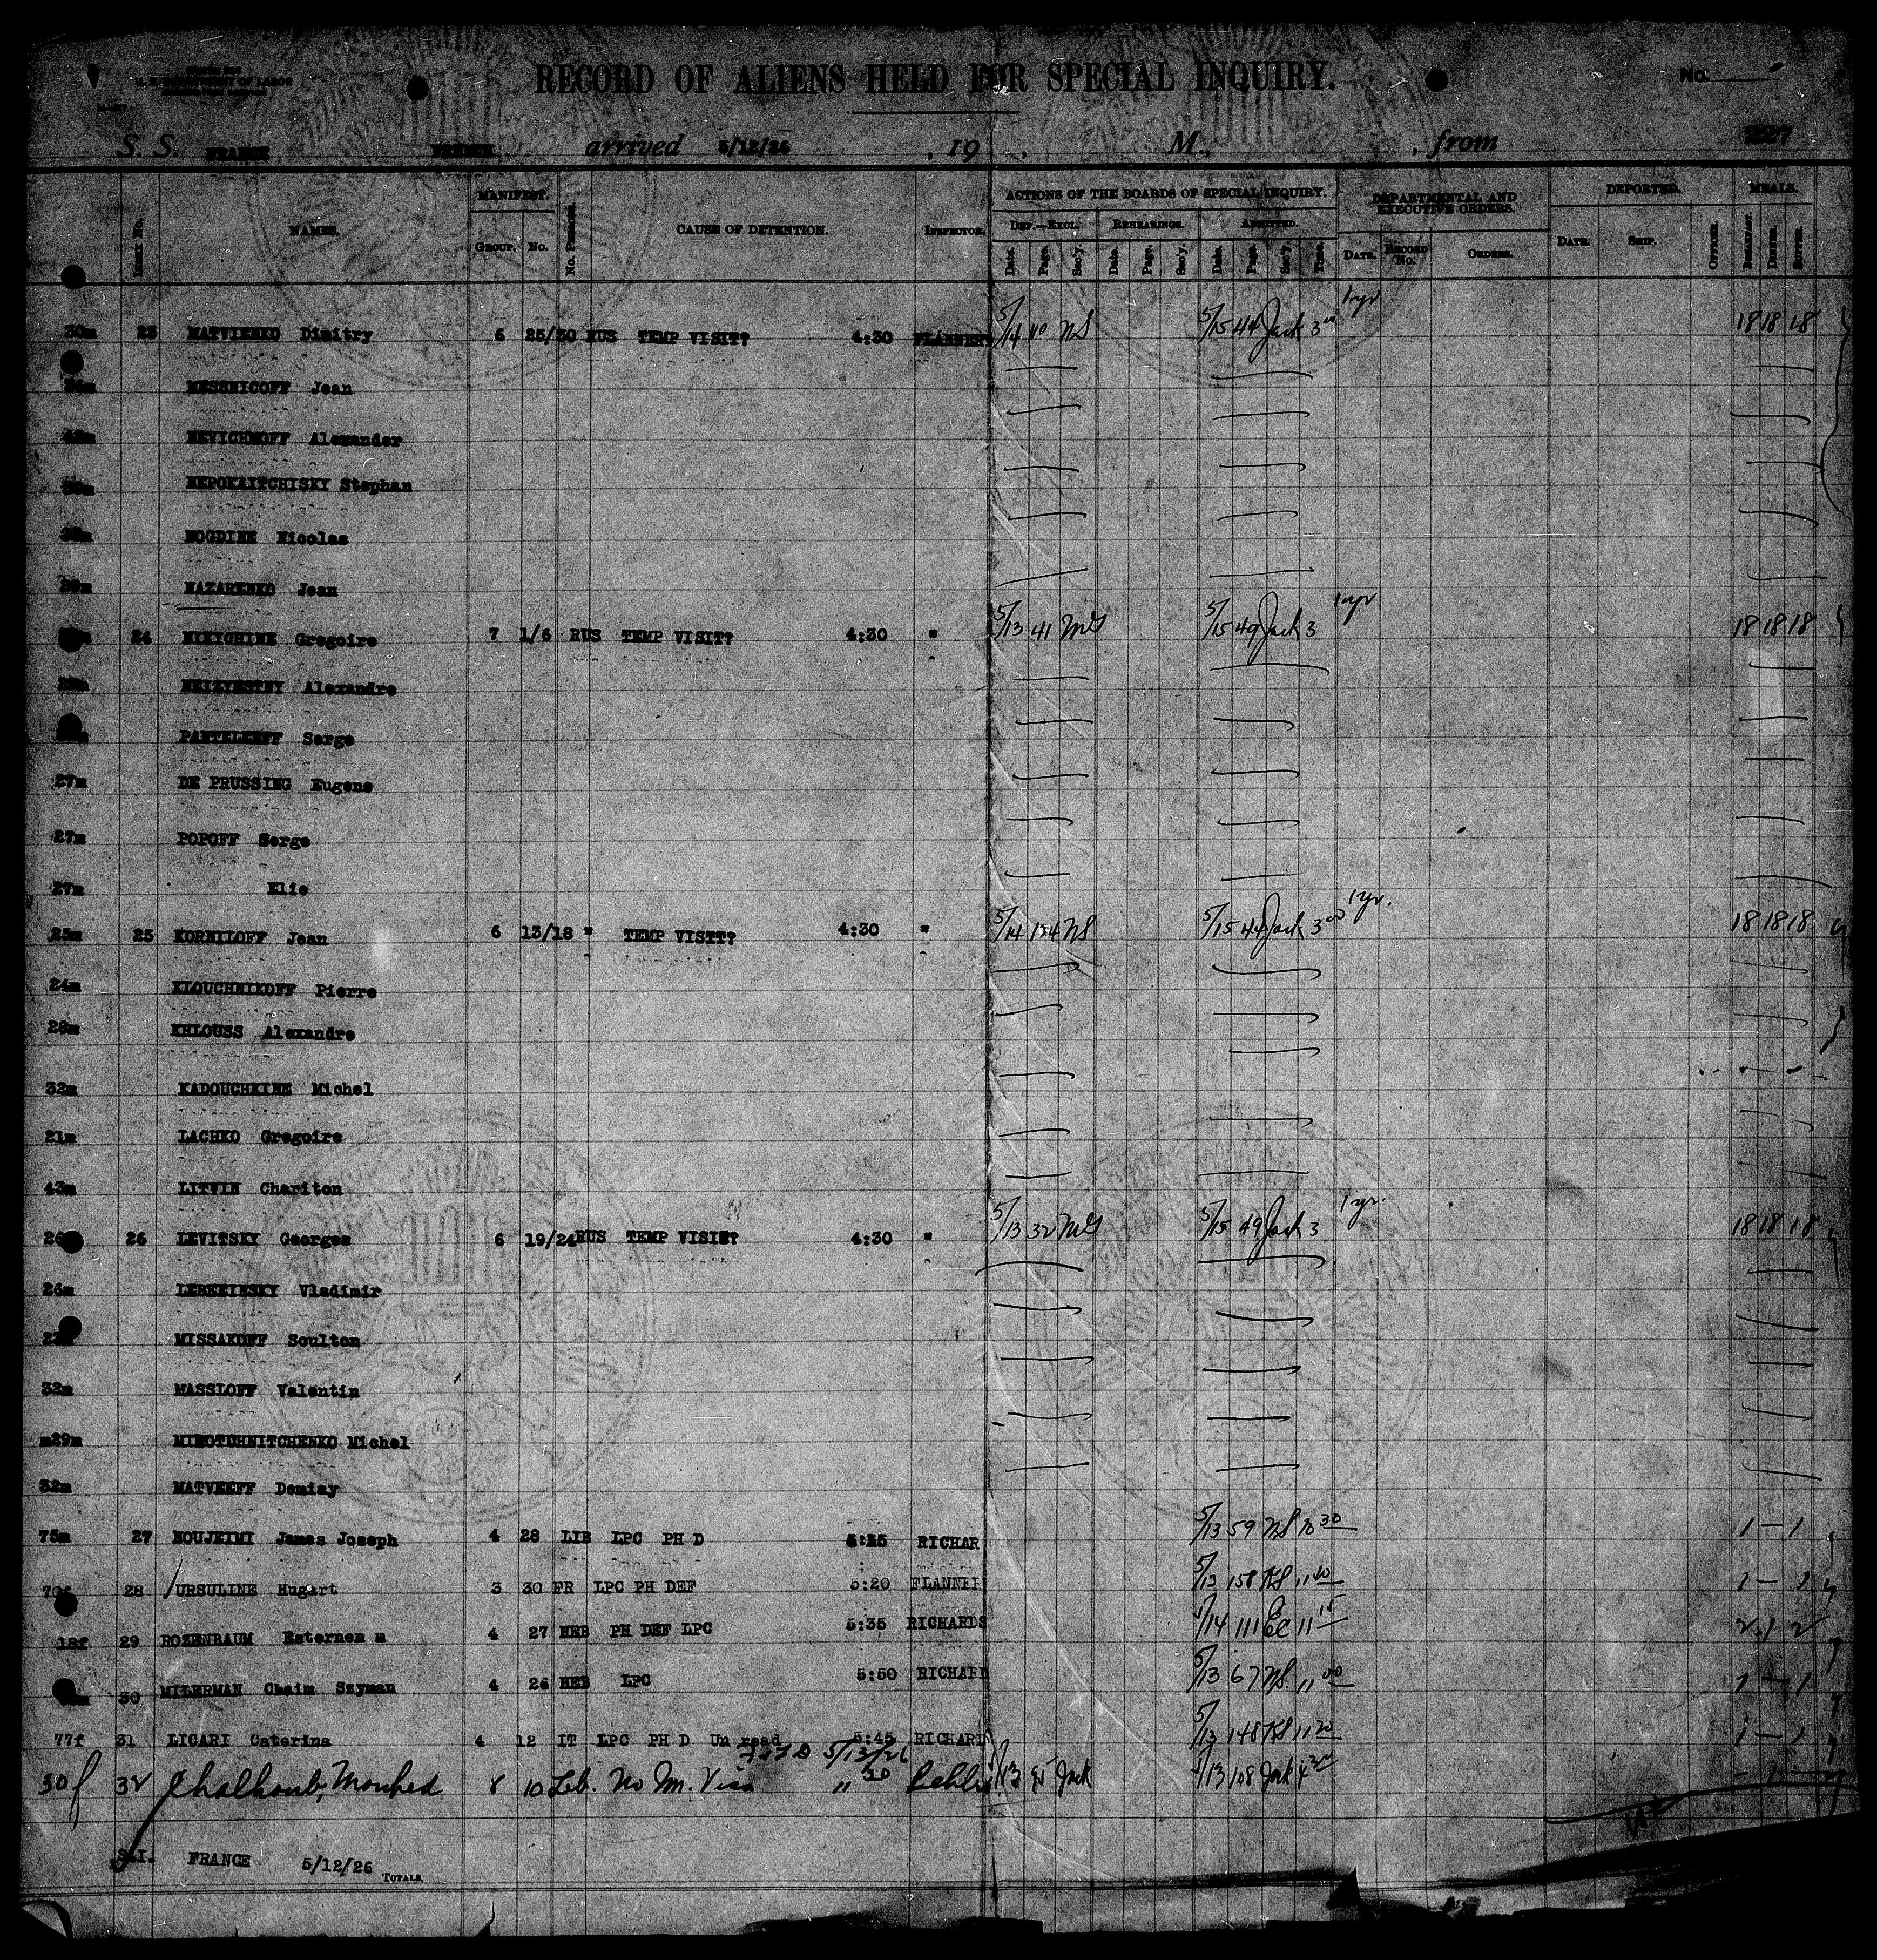 RECORD OF ALIENS HELD FOR SPECIAL INQUIRY.
No.
S. S. FRANCE FRENCH arrived 5/12/26 , 19 , M., , from 227
INDEX No. NAMES. MANIFEST. GROUP. No. No. PERSONS. CAUSE OF DETENTION. INSPECTOR. ACTIONS OF THE BOARDS OF SPECIAL INQUIRY. DEPARTMENTAL AND EXECUTIVE ORDERS. DEPORTED. MEALS.
DEF.—EXCL. REHEARINGS. ADMITTED.
Date. Page. Sec'y. Date. Page. Sec'y. Date. Page. Sec'y. Time. DATE. RECORD No. ORDERS. DATE. SHIP. OFFICER. BREAKFAST. DINNER. SUPPER.
1 yr
30m 23 MATVIENKO Dimitry 6 25/30 RUS TEMP VISIT? 4:30 FLANNERY 5/14 40 NS 5/15 44 Jack 3 00 18 18 18
MESSNICOFF Jean
Alexander
NEPOKAITCHISKY Stephan
NOGDINE Nicolas
NAZARENKO Jean
1 yr
24 NIKICHINE Gregoire 7 1/6 RUS TEMP VISIT? 4:30 " 5/13 41 McG 5/15 49 Jack 3 18 18 18
NEIZVESTNY Alexandre
PANTELEEFF Serge
27m DE PRUSSING Eugene
27m POPOFF Serge
27m Elie
1 yr.
25m 25 KORNILOFF Jean 6 13/18 " TEMP VISIT? 4:30 " 5/14 124 NS 5/15 44 Jack 3 00 18 18 18
24m KLOUCHNIKOFF Pierre
28m KHLOUSS Alexandre
32m KADOUCHKINE Michel
21m LACHKO Gregoire
43m LITVIN Chariton
1 yr.
26 26 LEVITSKY Georges 6 19/24 RUS TEMP VISIT? 4:30 " 5/13 32 McG 5/15 49 Jack 3 18 18 18
26m LEBEKINSKY Vladimir
MISSAKOFF Soulton
32m MASSLOFF Valentin
m29m MIROTCHNITCHENKO Michel
32m MATVEEFF Demiay
75m 27 NOUJEIMI James Joseph 4 28 LIB LPC PH D 5:35 RICHAR 5/13 59 NS 10 30 1 — 1
70f 28 URSULINE Hugart 3 30 FR LPC PH DEF 5:20 FLANNER 5/13 158 KS 11 40 1 — 1
18f 29 ROZENBAUM Esternem m 4 27 HEB PH DEF LPC 5:35 RICHARDS 5/14 111 EC 11 15 2 1 2
30 MILERMAN Chaim Szyman 4 26 HEB LPC 5:50 RICHARD 5/13 67 NS 11 00 1 — 1
77f 31 LICARI Caterina 4 12 IT LPC PH D Un read 5:45 RICHARD 5/13 148 KS 11 20 1 — 1
5/13/26
30f 32 Chalhoub, Mouhed 8 10 Leb. No Im. Visa 11 30 5/13 Jack 5/13 108 Jack 4 30 - 1 -
S.I. FRANCE 5/12/26 TOTALS